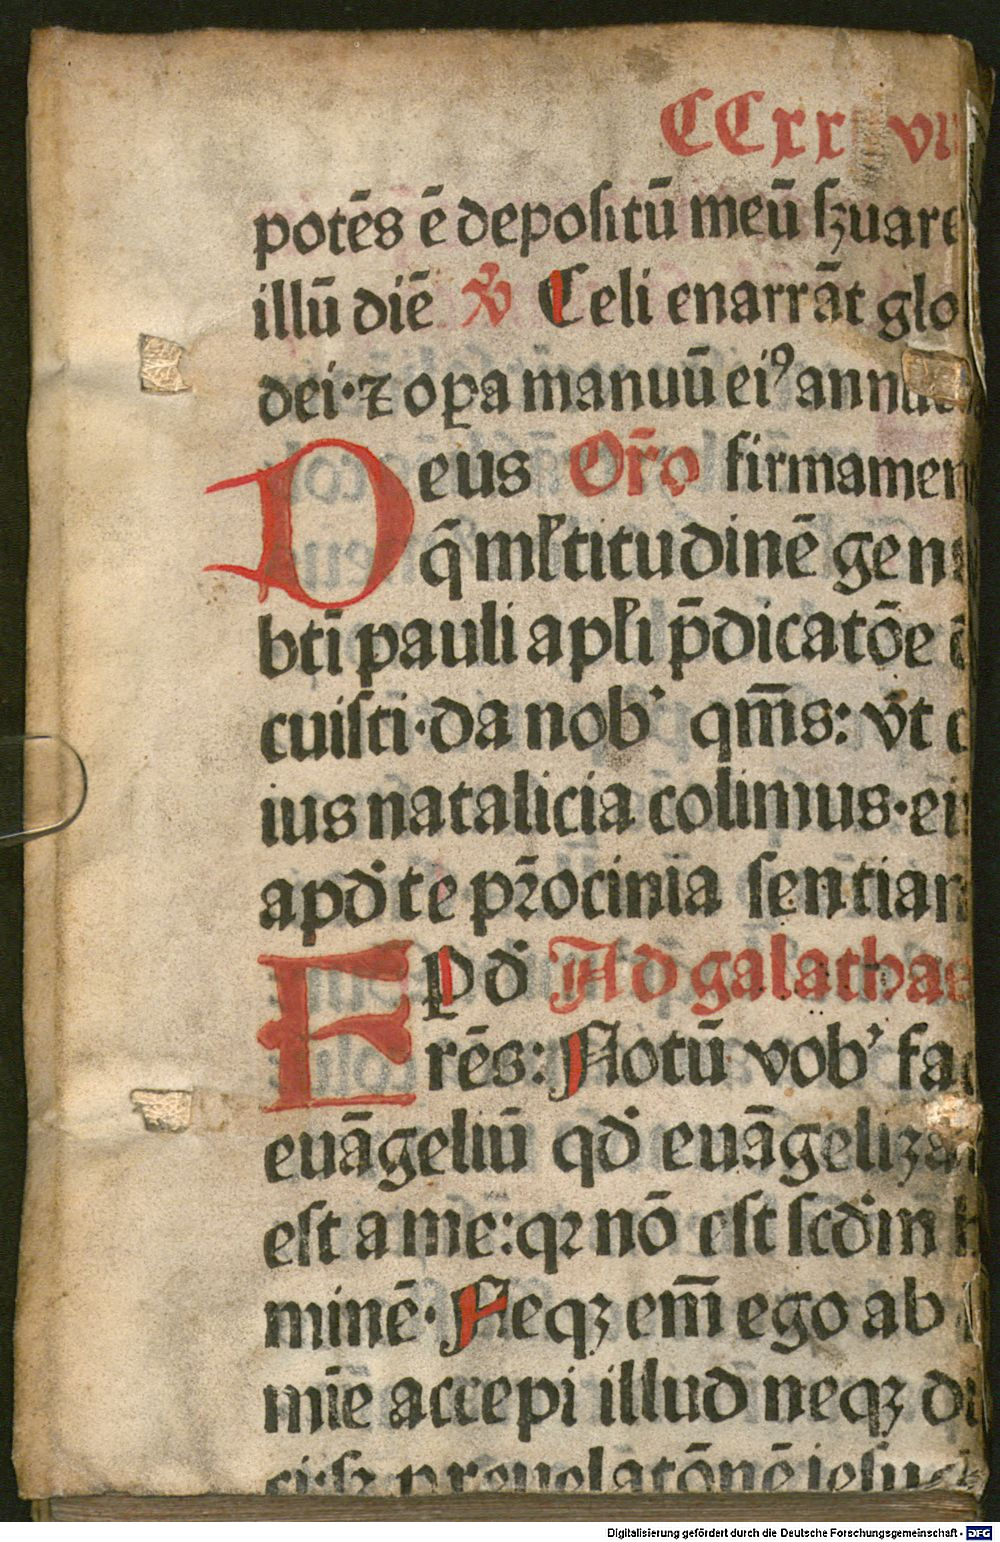 CCxx vii
potēs ē depositū meū sꝫuare
illū diē ℣ Celi enarrāt glo
dei·⁊ oꝑa manuū eiꝰ annu
Deus Or̄o firmamen
q̄ ml̄titudinē gen
bt̄i pauli apl̄i p̄dicatōe
cuisti·da nob' qm̄s: vt
ius natalicia colimus·ei
apd̛ te pr̄ocinia sentiam
EPd̛ Ad galathas
rēs: Notū vob' fa
euāgeliū qd̛ euāgeliza
est a me: qꝛ nō est scd̛m
minē· Neqꝫ em̄ ego ab
mīe accepi illud neqꝫ di
ci·sꝫ p reuelatōnē iesu
Digitalisierung gefördert durch die Deutsche Forschungsgemeinschaft - DFG